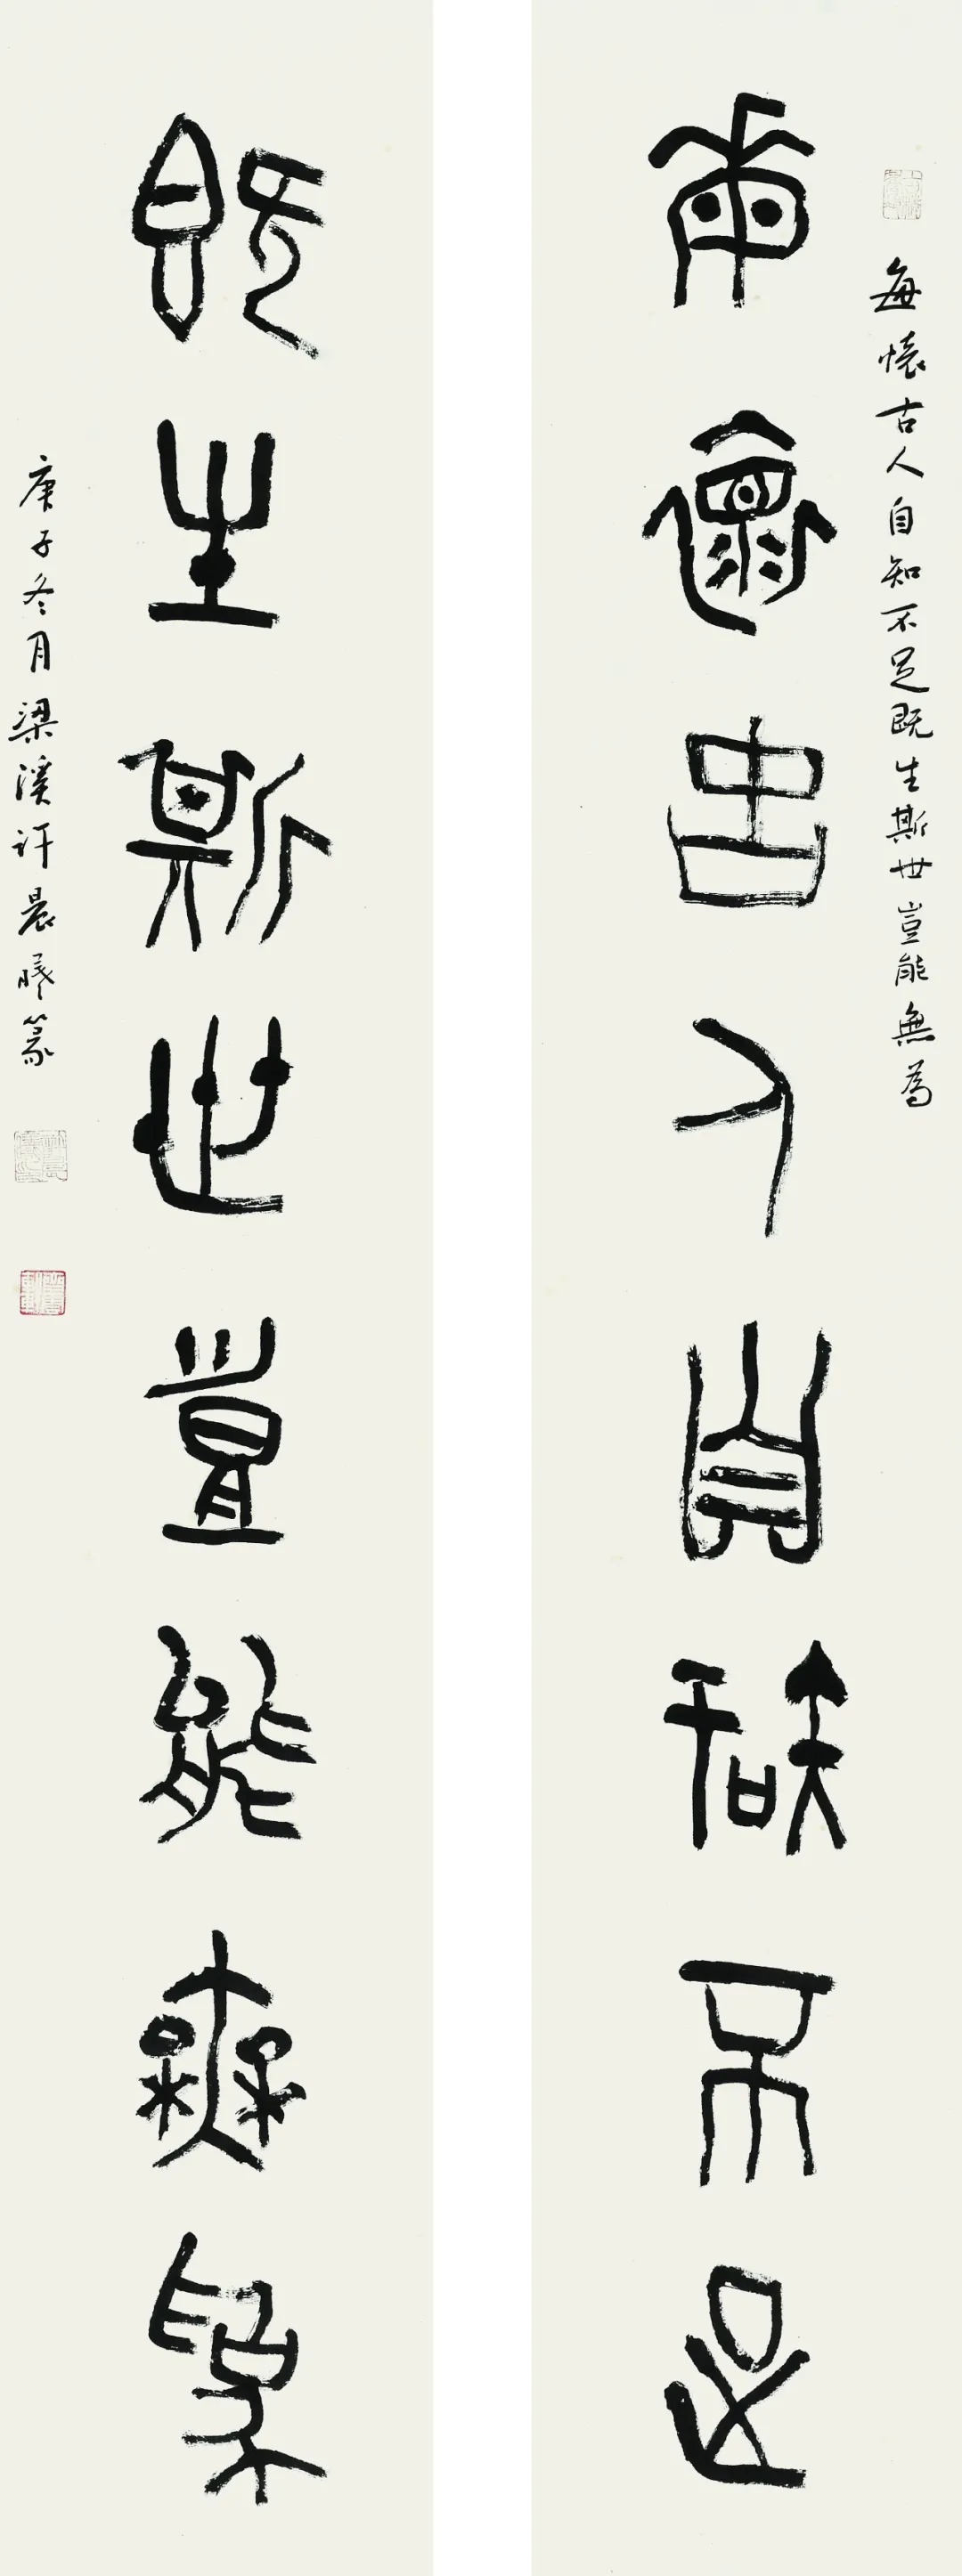 每懷古人自知不足既生斯世豈能無為
每懷古人自知不足
既生斯世豈能無為
庚子冬月梁溪許晨曦篆